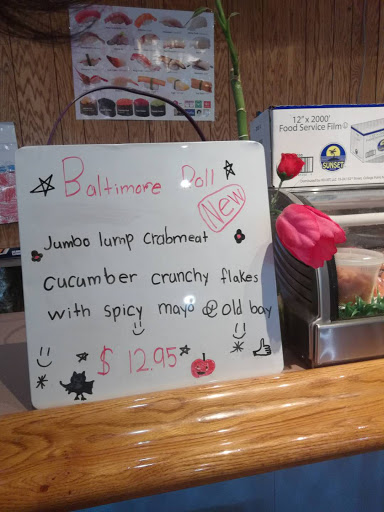 Baltimore Doll
New
Jumbo lump crabmeat
cucumber crunchy flakes
with spicy mayo @ old bay
$ 12.95
12" x 2000'
Food Service Film
SUNSET